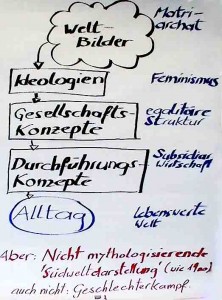 Welt-
Bilder
Matri-
archat
Ideologien
Feminismus
Gesellschafts-
Konzepte
egalitäre
Struktur
Durchführungs-
Konzepte
Subsidiar
wirtschaft
Alltag
Lebenswerte
Welt
Aber: Nicht mythologisierende
auch nicht: Geschlechterkampf.